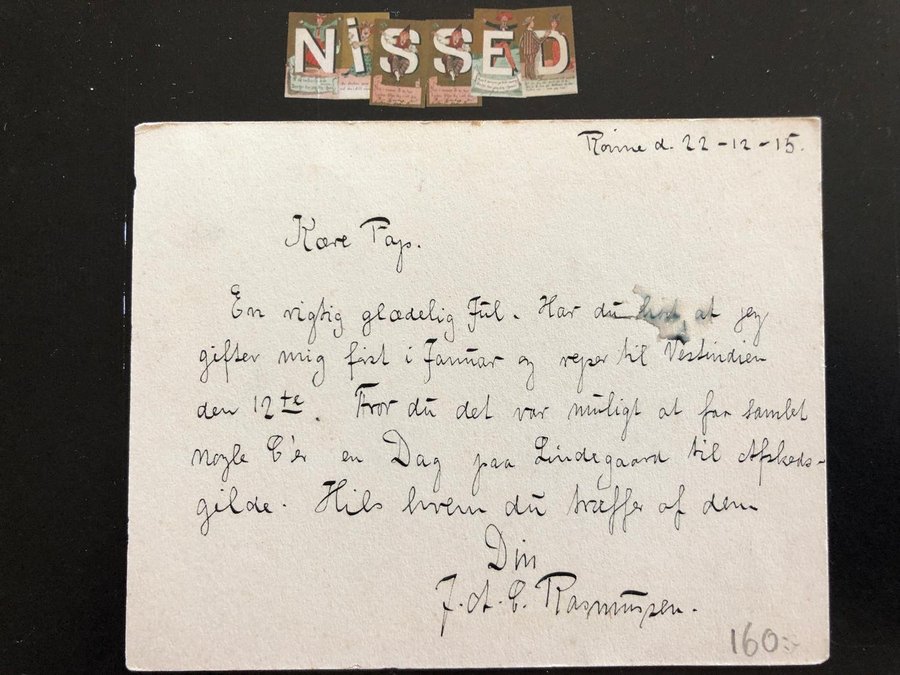 NiSSED
Rønne d. 22-12-15.
Kære Fap.
En rigtig glædelig Jul. Har du hørt at jeg
gifter mig først i Januar og rejser til Vestindien
den 12te. Tror du det var muligt at faa samlet
nogle C'er en Dag paa Lindegaard til Afskeds-
gilde. Hils hvem du træffer af dem
Din
J. A. C. Rasmussen.
160:-